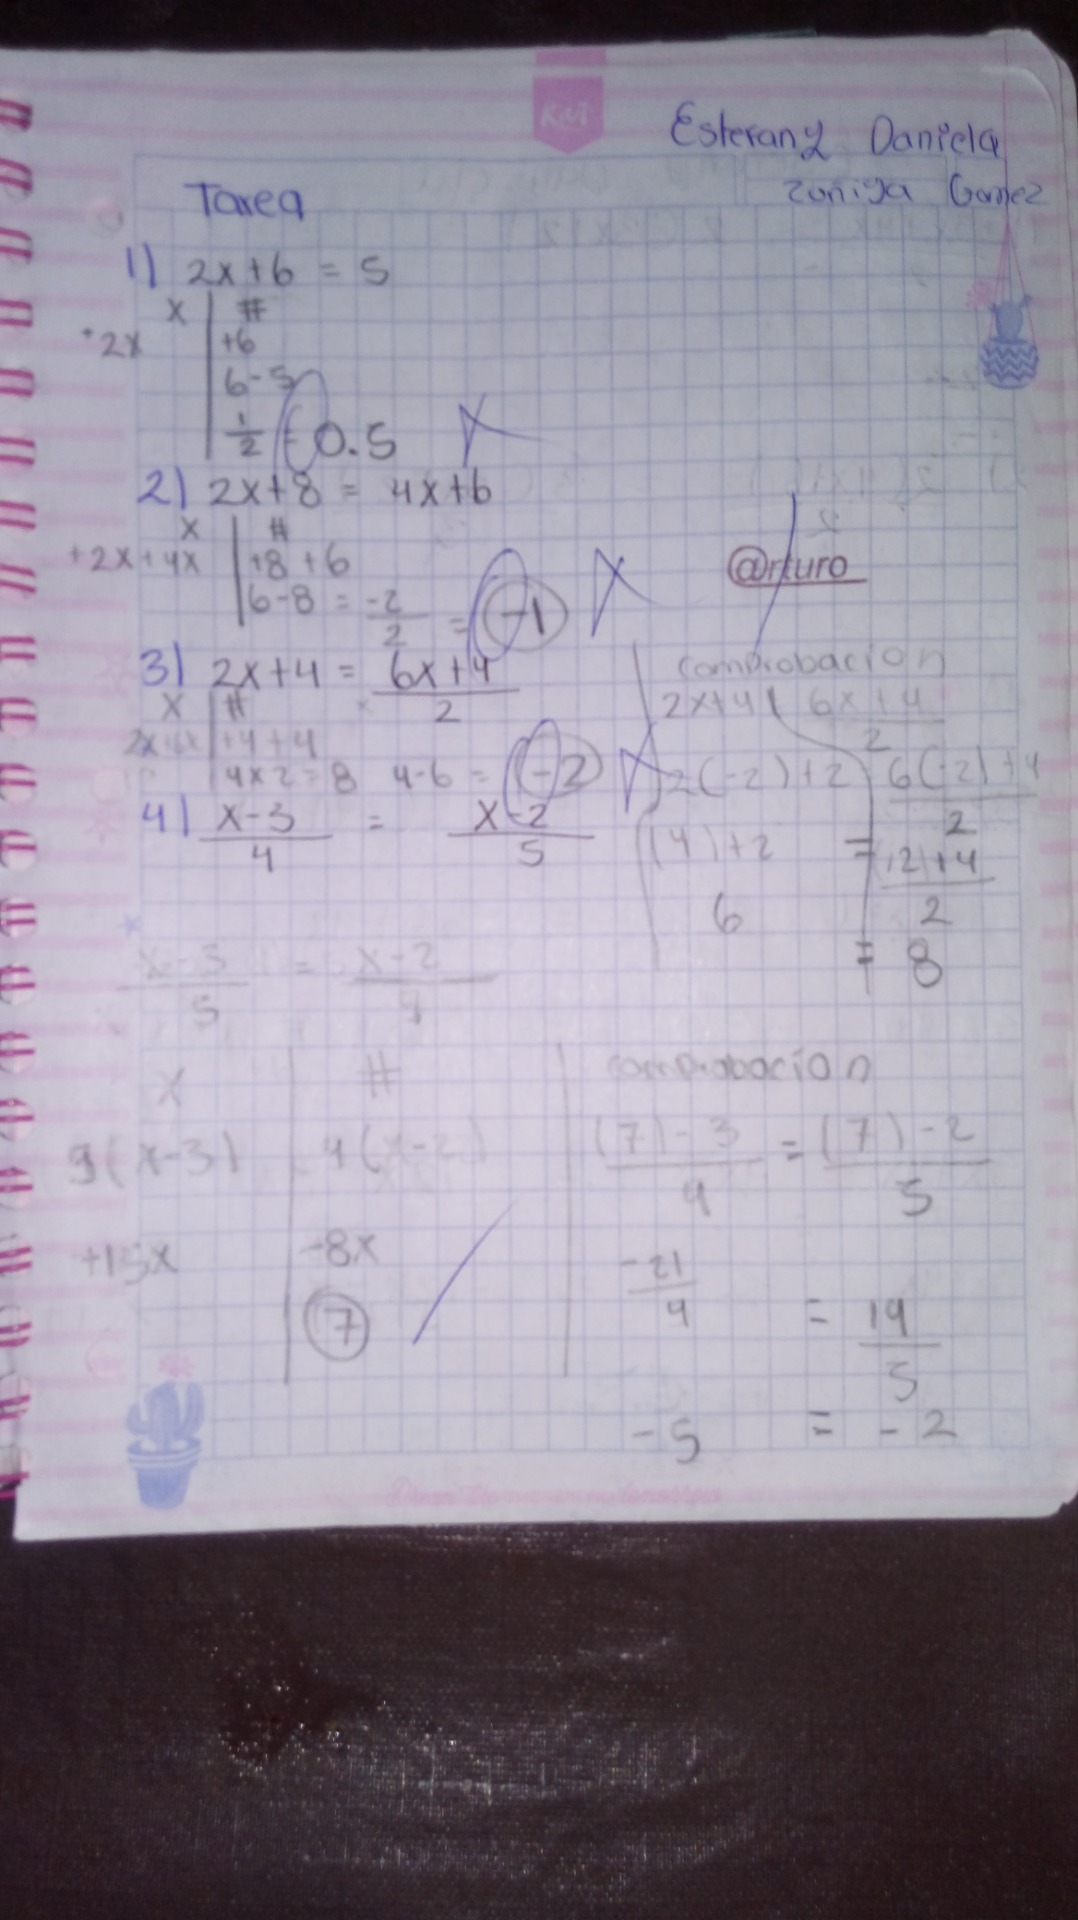 Kiut
Esterany Daniela
Zuñiga Gomez
Tarea
1) 2x+6 = 5
x | #
+2x | +6
6-5
1/2 = 0.5
2) 2x+8 = 4x+6
x | #
+2x+4x | +8 +6
6-8 = -2/2 = -1
@rturo
3) 2x+4 = 6x+4/2
x | #
+4+4
4x2=8 4-6= -2
comprobacion
2x+4 6x+4/2
2(-2)+2 6(-2)+4/2
(4)+2 = (12)+4/2
6 = 8
4) x-3/4 = x-2/5
x-3/5 = x-2
x | #
(x-3) | 4(x-2)
-8x
7
comprobacion
(7)-3/4 = (7)-2/5
-21/4 = 14/5
-5 = -2